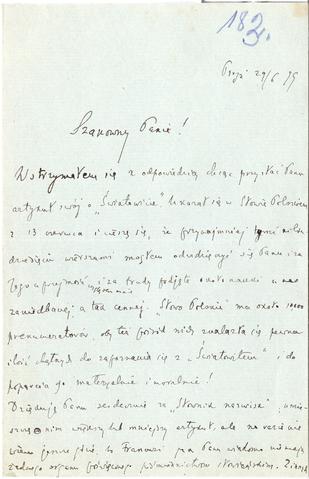 182.
29/6
Szanowny Panie!
Wstrzymałem się z odpowiedzią chcąc przysłać Panu
artykuł swój o „Światowicie". Ukazał się w Słowie Polskiem
z 13 czerwca i cieszę się, że przynajmniej tymi
wierszami mogłem odwdzięczyć się Panu za
Jego uprzejmość i za trudy podjęte około nauki u nas
zaniedbanej a tak cennej. „Słowo Polskie" ma około 10000
prenumeratorów, oby też pośród nich znalazła się pewna
ilość chętnych do zapoznania się z „Światowitem" i do
poparcia go materyalnie i moralnie!
Dziękuję Panu serdecznie za „Słownik nazwisk",
o nim większy lub mniejszy artykuł, ale na razie nie
wiem jeszcze gdzie, bo Francuzi jak Panu wiadomo nie mają
żadnego organu poświęconego